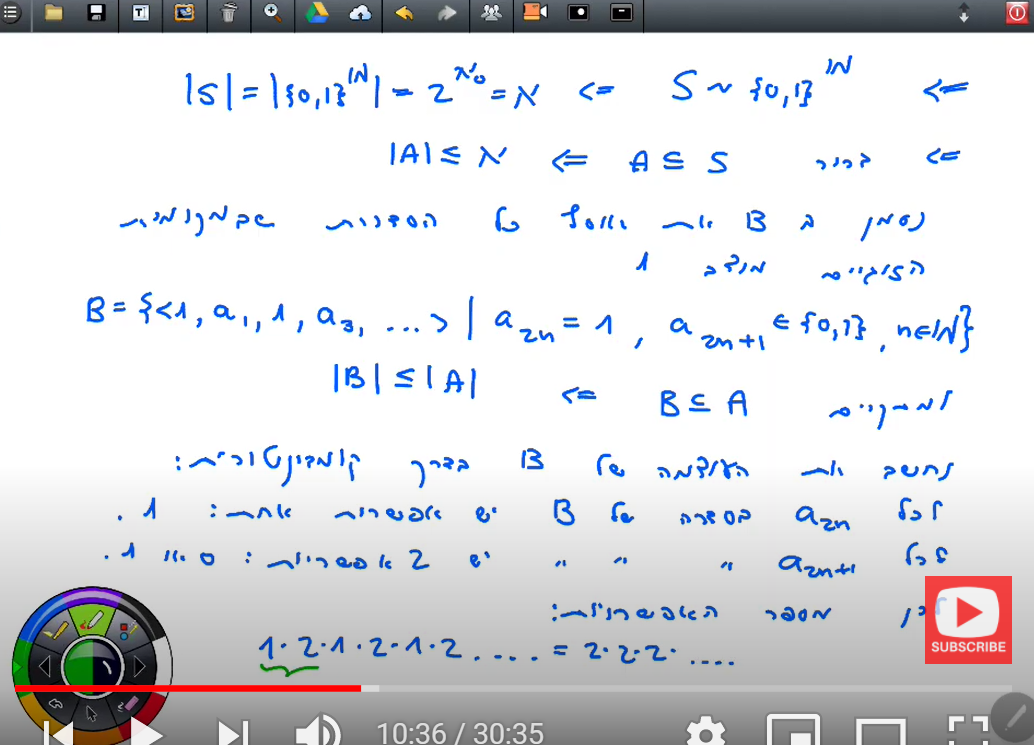 ⇐ S ~ {0,1}^ℕ ⇐ |S| = |{0,1}^ℕ| = 2^ℵ₀ = ℵ
⇐ ברור A ⊆ S ⇐ |A| ≤ ℵ
נסמן ב B את אוסף כל הסדרות שבמקומות
הזוגיים מוצב 1
B = {<1, a₁, 1, a₃, ...> | a₂ₙ = 1, a₂ₙ₊₁ ∈ {0,1}, n∈ℕ}
B ⊆ A ⇐ |B| ≤ |A|
נחשב את העוצמה של B בדרך קומבינטורית:
לכל a₂ₙ בסדרה של B יש אפשרות אחת: 1.
לכל a₂ₙ₊₁ " " " יש 2 אפשרויות: 0 או 1.
לכן מספר האפשרויות:
1·2·1·2·1·2.... = 2·2·2·....
SUBSCRIBE
10:36 / 30:35